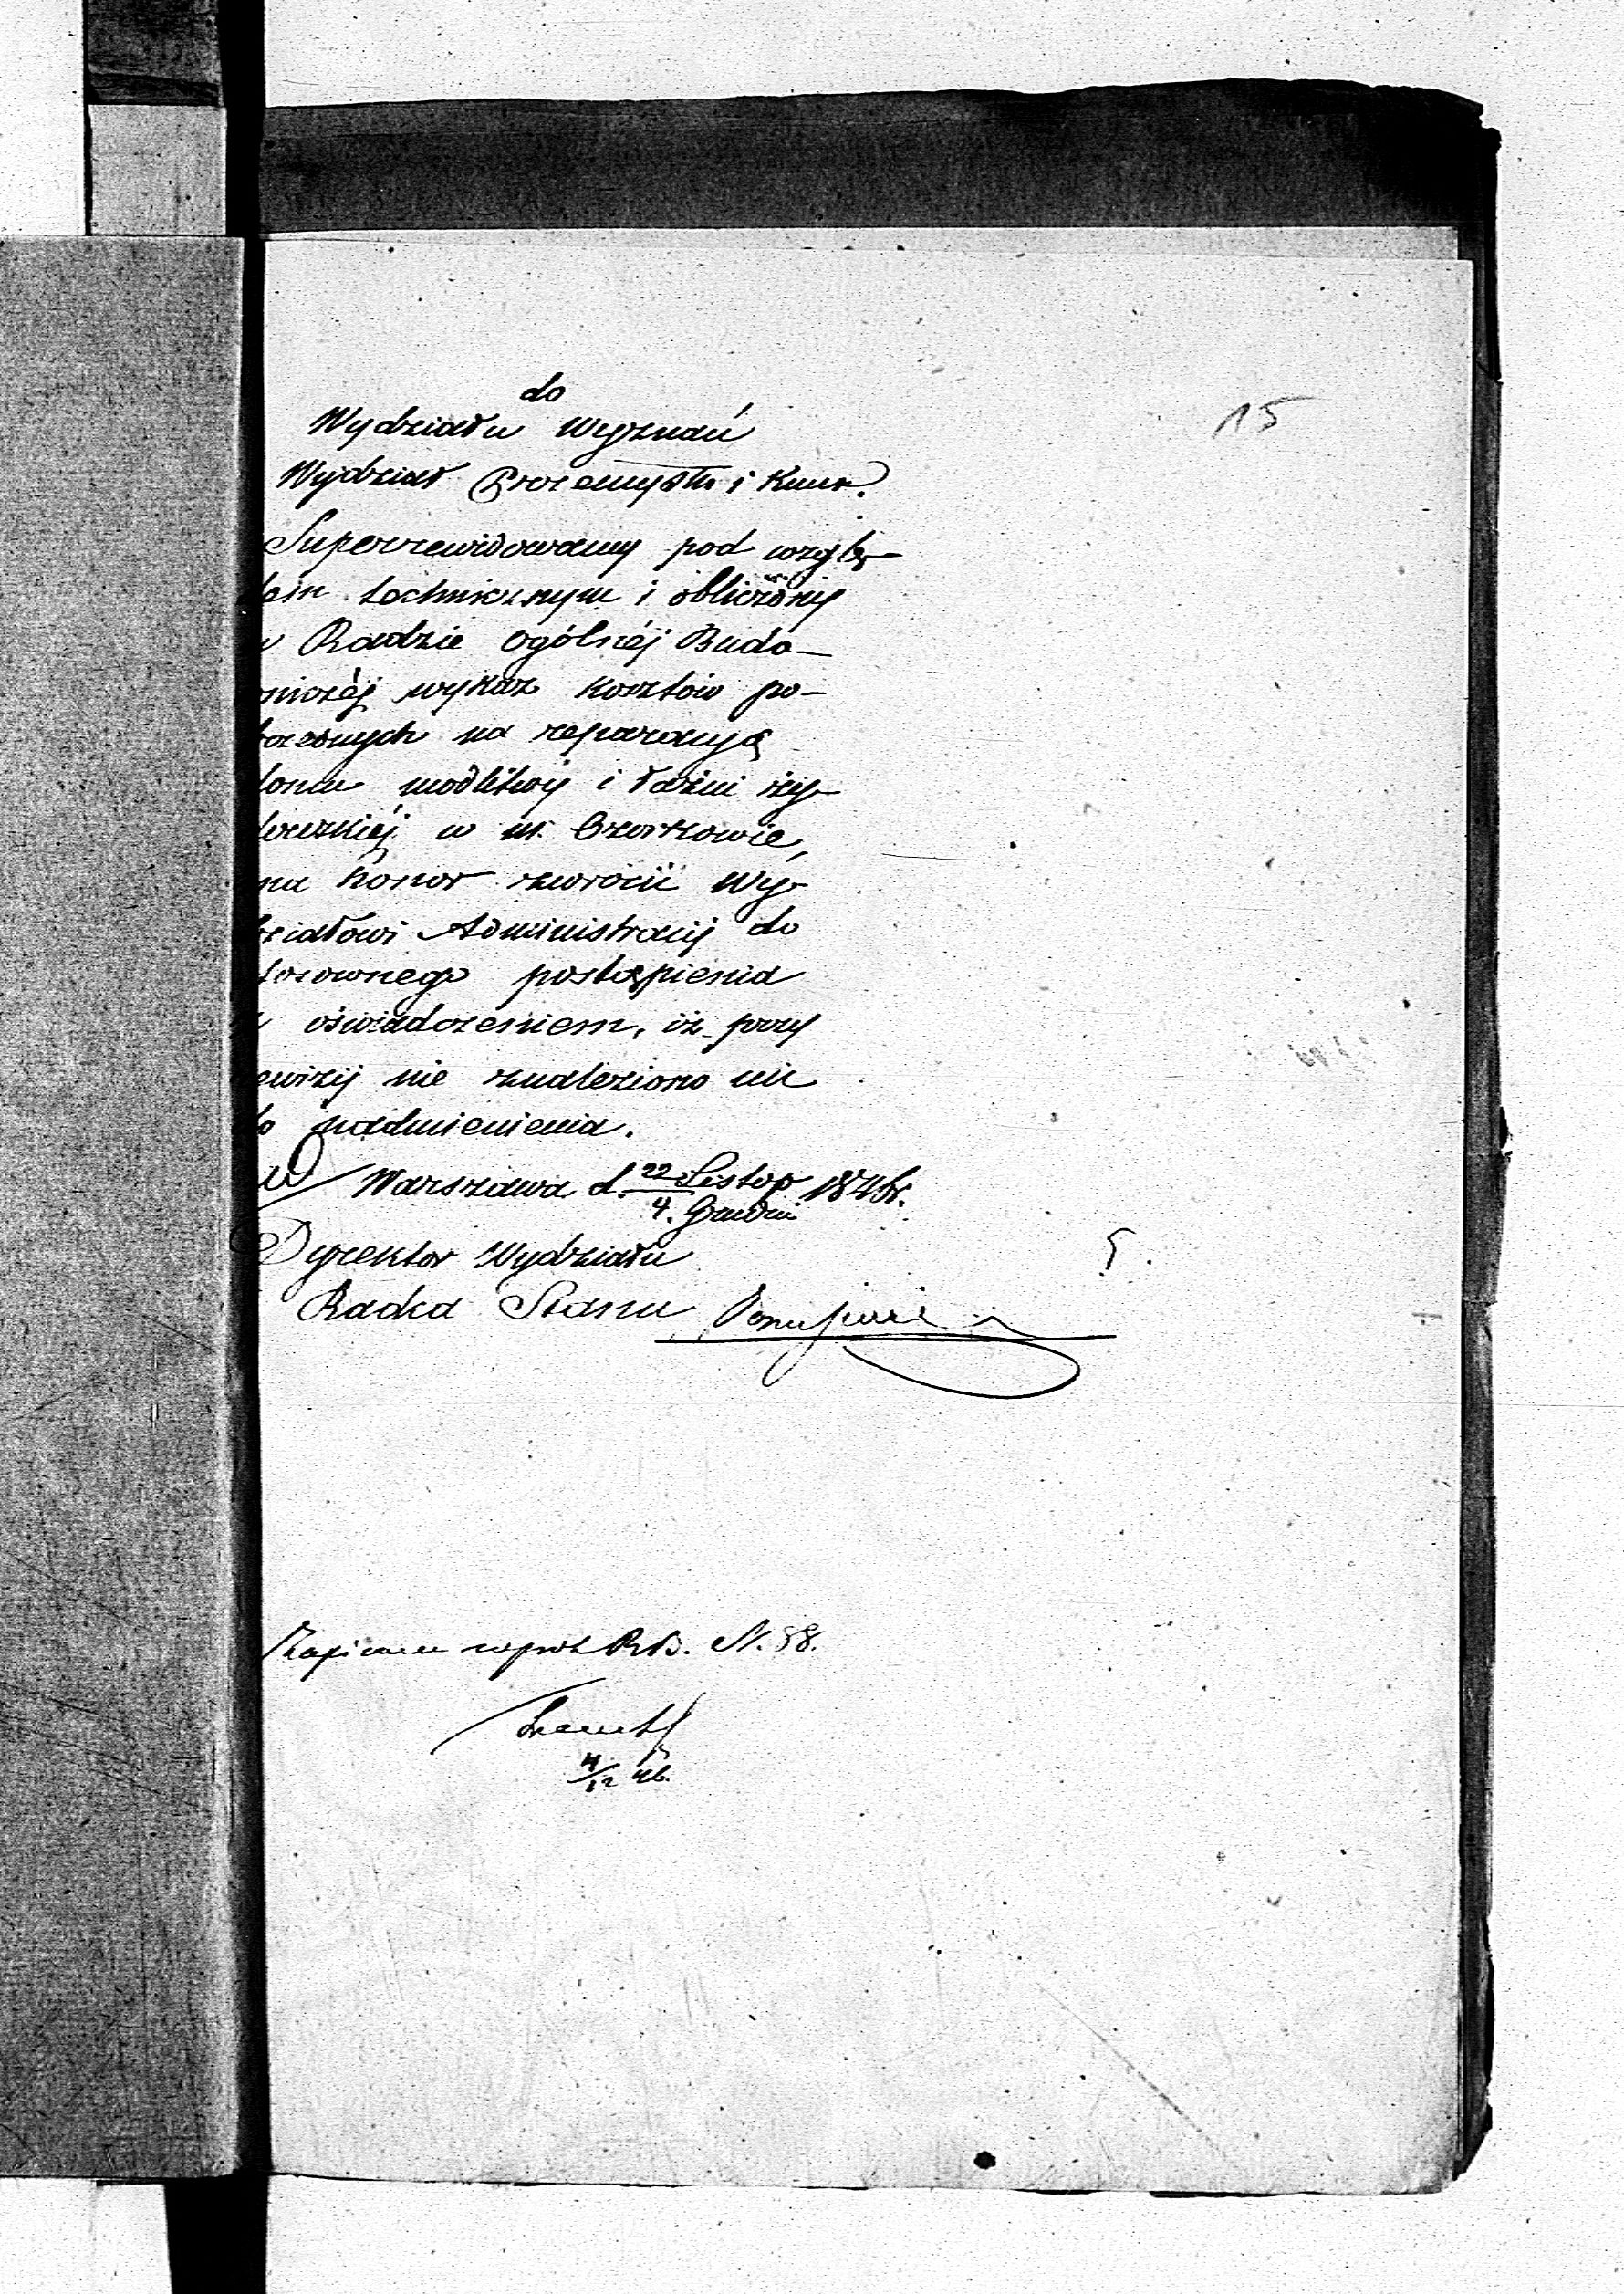 15
do
Wydziału Wyznań
Wydział Przemysłu i Kunst.
Superrewidowany pod wzglę-
dem technicznym i obliczony
w Radzie Ogólnéj Budo-
wniczéj wykaz kosztów po-
trzebnych na reparacyą
domu modlitwy i łaźni ży-
dowskiéj w m. Ozorkowie,
ma honor zwrócić Wy-
działowi Administracyj do
stosownego postąpienia
z oświadczeniem, iż przy
rewizij nie znaleziono nic
do nadmienienia.
Warszawa d. 22 Listop / 4. Grudni 1846r.
Dyrektor Wydziału
Radca Stanu
Zapisano w prot. R.B. N. 88.
4/12 46.